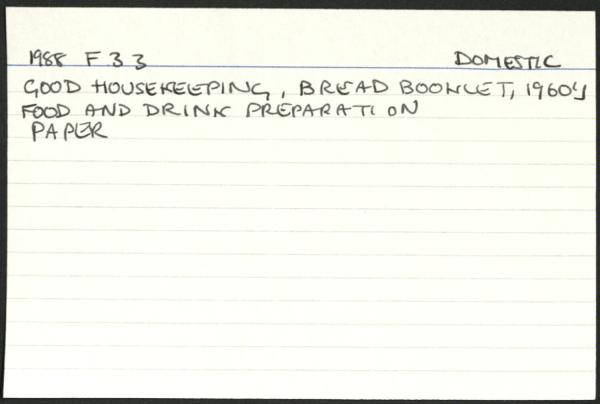 1988 F 33 DOMESTIC
GOOD HOUSEKEEPING, BREAD BOOKLET, 1960's
FOOD AND DRINK PREPARATION
PAPER